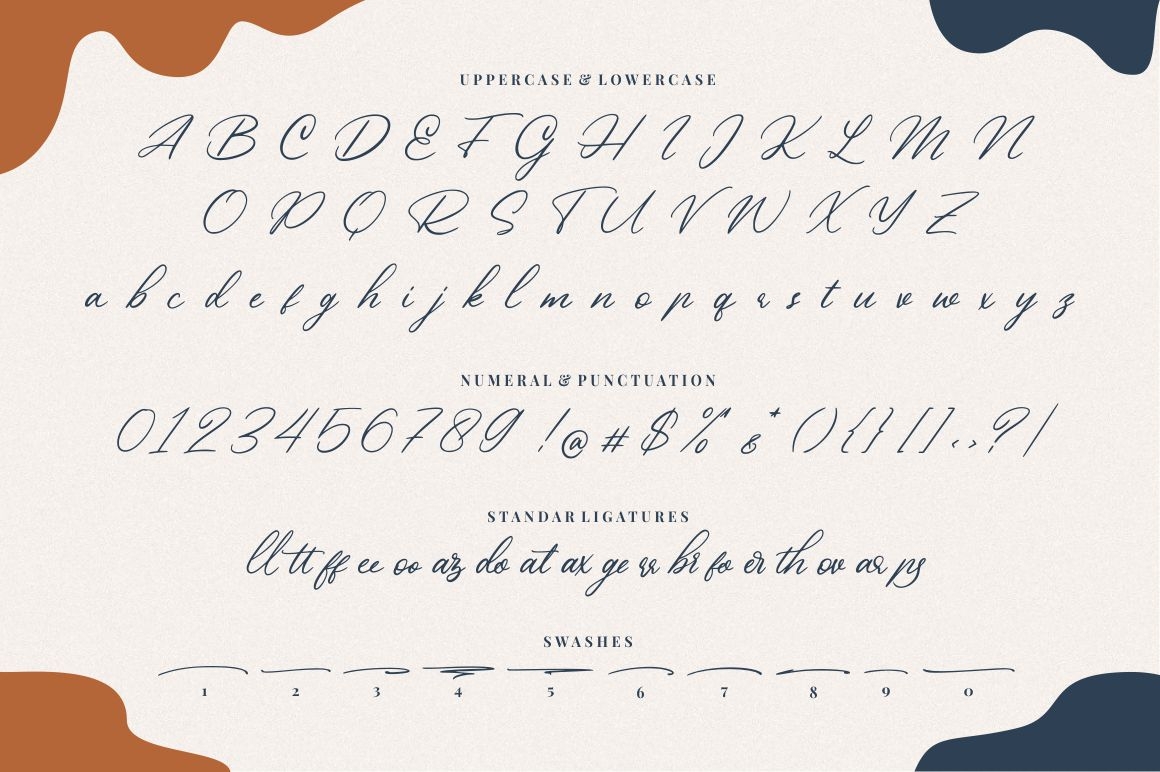 UPPERCASE & LOWERCASE
A B C D E F G H I J K L M N
O P Q R S T U V W X Y Z
a b c d e f g h i j k l m n o p q r s t u v w x y z
NUMERAL & PUNCTUATION
0 1 2 3 4 5 6 7 8 9 ! @ # $ % & * ( ) { } [ ] < > ? /
STANDAR LIGATURES
ll tt ff ee oo az do at ax ge rr br fo er th ov ar ps
SWASHES
1 2 3 4 5 6 7 8 9 0